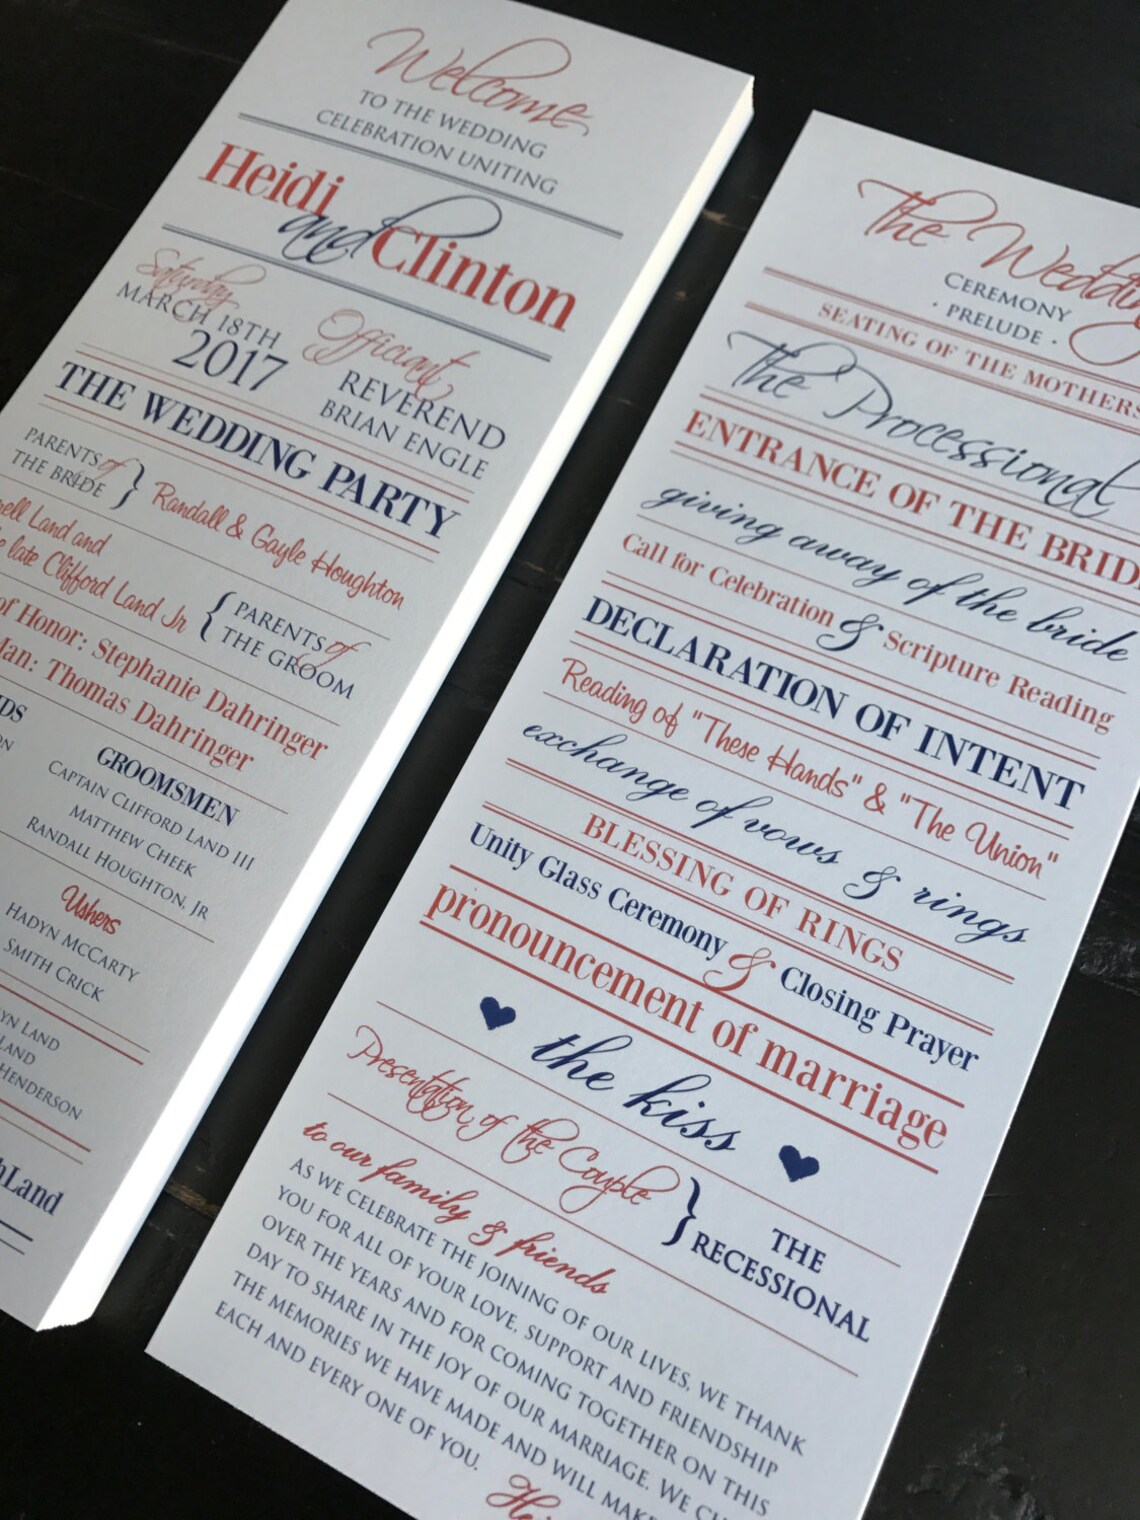 Welcome
TO THE WEDDING
CELEBRATION UNITING
Heidi
and Clinton
Saturday
MARCH 18TH
2017
Officiant
REVEREND
BRIAN ENGLE
THE WEDDING PARTY
PARENTS of
THE BRIDE } Randall & Gayle Houghton
Land and
late Clifford Land Jr { PARENTS of
THE GROOM
of Honor: Stephanie Dahringer
Man: Thomas Dahringer
GROOMSMEN
CAPTAIN CLIFFORD LAND III
MATTHEW CHEEK
RANDALL HOUGHTON, JR
Ushers
HADYN MCCARTY
SMITH CRICK
LAND
LAND
HENDERSON
Land
The Wedding
CEREMONY
· PRELUDE ·
SEATING OF THE MOTHERS
The Processional
ENTRANCE OF THE BRIDE
giving away of the bride
Call for Celebration & Scripture Reading
DECLARATION OF INTENT
Reading of "These Hands" & "The Union"
exchange of vows & rings
BLESSING OF RINGS
Unity Glass Ceremony & Closing Prayer
pronouncement of marriage
♥ the kiss ♥
Presentation of the Couple } THE
RECESSIONAL
to our family & friends
AS WE CELEBRATE THE JOINING OF OUR LIVES, WE THANK
YOU FOR ALL OF YOUR LOVE, SUPPORT AND FRIENDSHIP
OVER THE YEARS AND FOR COMING TOGETHER ON THIS
DAY TO SHARE IN THE JOY OF OUR MARRIAGE. WE
THE MEMORIES WE HAVE MADE AND WILL MAKE
EACH AND EVERY ONE OF YOU.